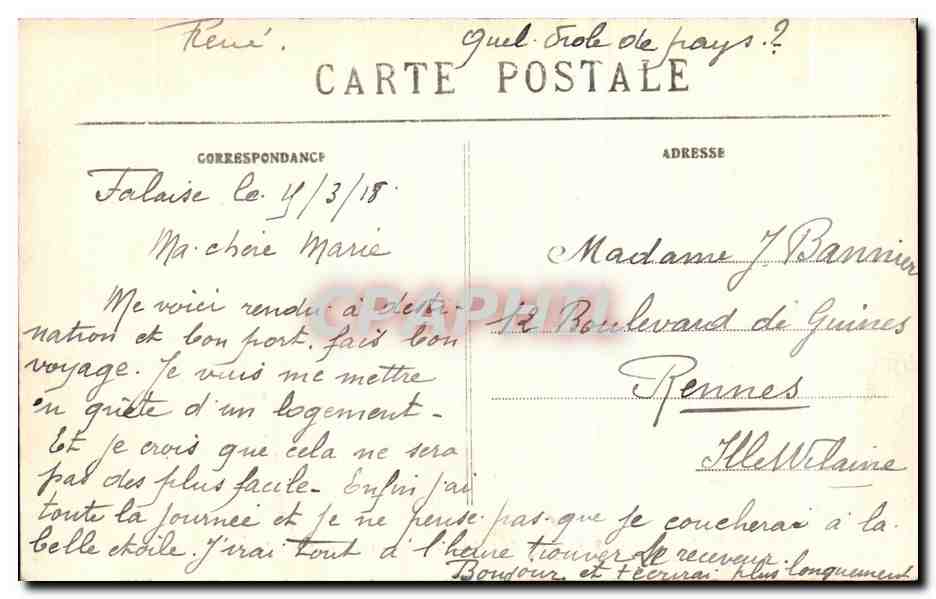 René. Quel drole de pays.?
CARTE POSTALE
CORRESPONDANCE
ADRESSE
Falaise le /3/18.
Ma chère Marie
Me voici rendu à desti-
nation et bon port. fais bon
voyage. Je vais me mettre
en quète d'un logement-
Et je crois que cela ne sera
pas des plus facile- Enfin j'ai
toute la journée et je ne pense pas que je coucherai à la
belle etoile. J'irai tout à l'heure trouver le receveur.
Bonjour et t'écrirai plus longuement
Madame J. Bannier
12 Boulevard de Guines
Rennes
Ille Vilaine
CPAPHIL